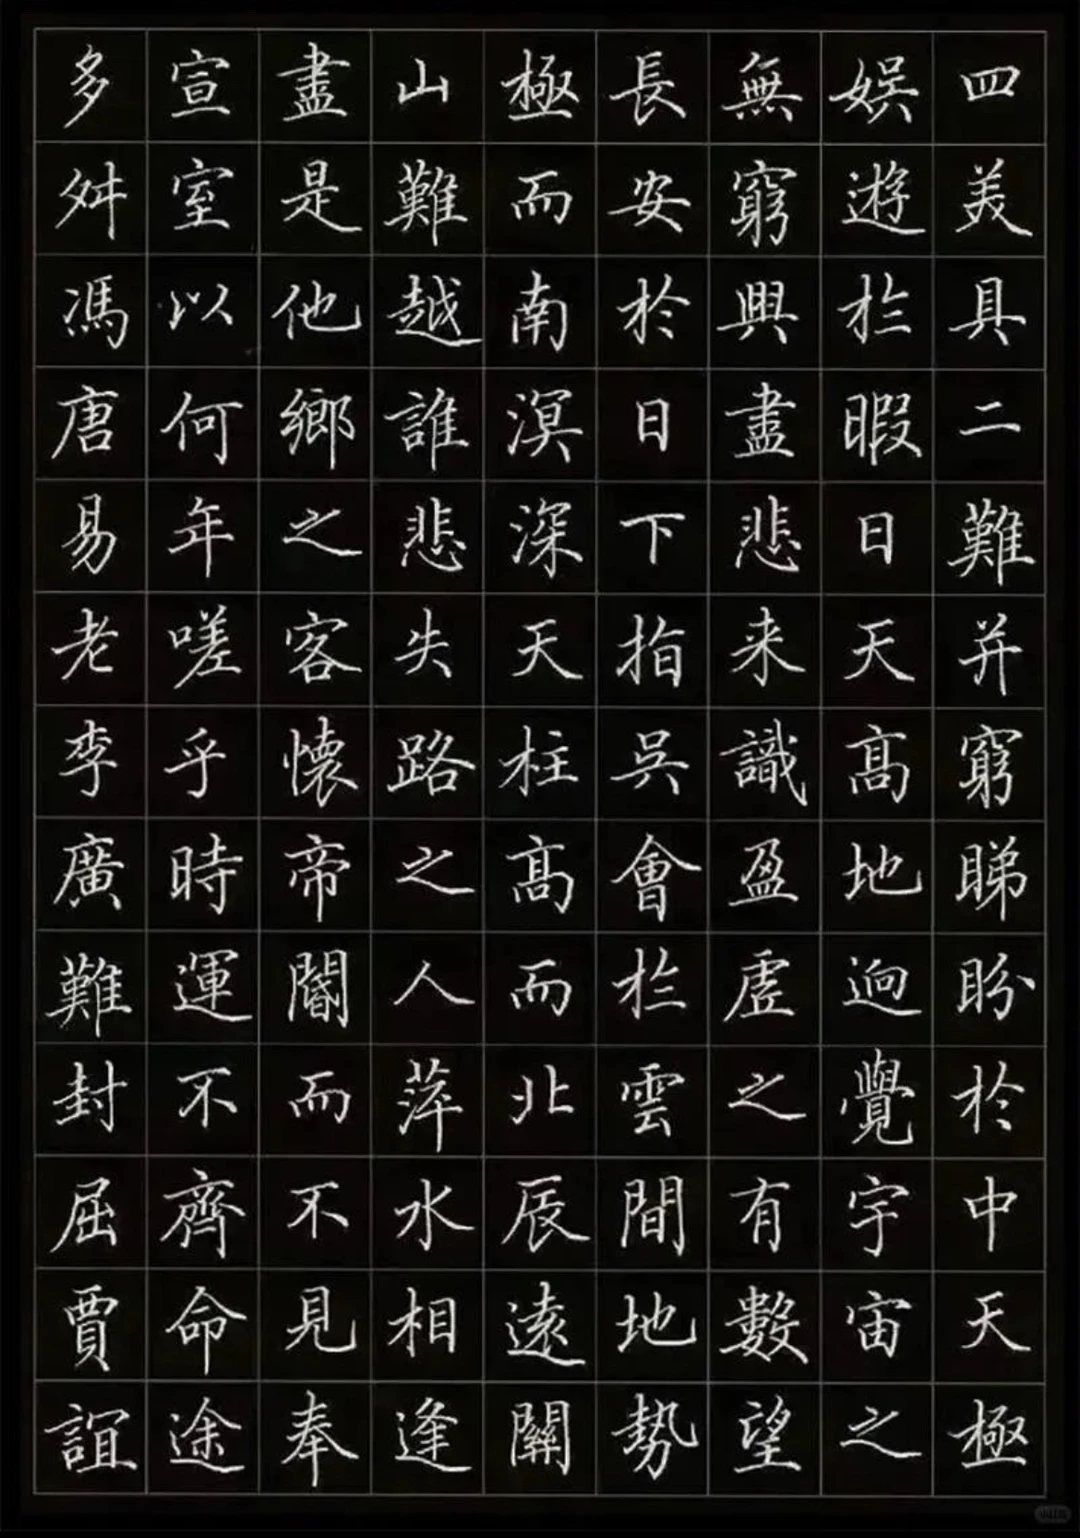 四美具二難并窮睇眄於中天極
娛遊於暇日天高地迥覺宇宙之
無窮興盡悲来識盈虛之有數望
長安於日下指吳會於雲間地勢
極而南溟深天柱高而北辰遠關
山難越誰悲失路之人萍水相逢
盡是他鄉之客懷帝閽而不見奉
宣室以何年嗟乎時運不齊命途
多舛馮唐易老李廣難封屈賈誼